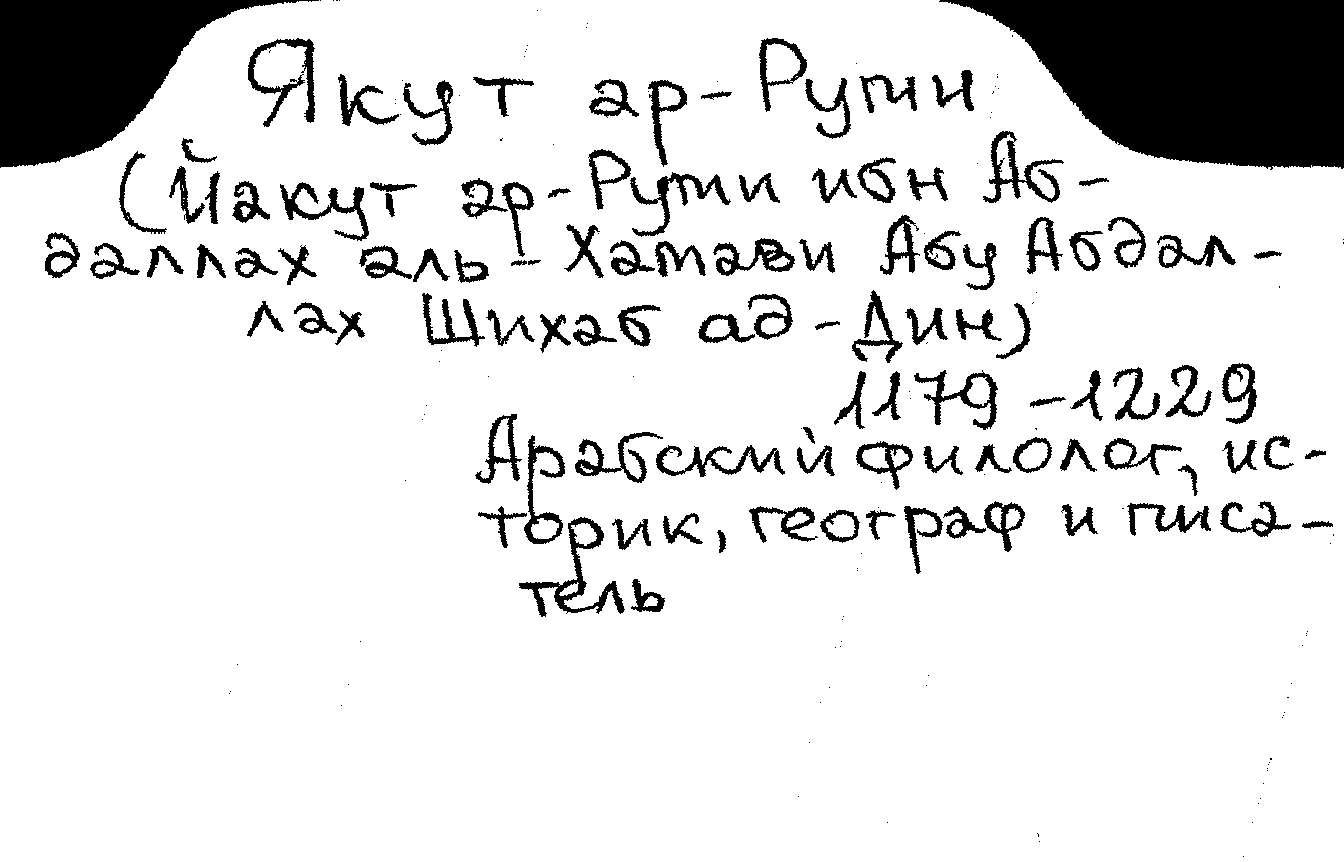 Якут ар-Руми
(Йакут ар-Руми ибн Аб-
даллах аль-Хамави Абу Абдал-
лах Шихаб ад-Дин)
1179-1229
Арабский филолог, ис-
торик, географ и писа-
тель